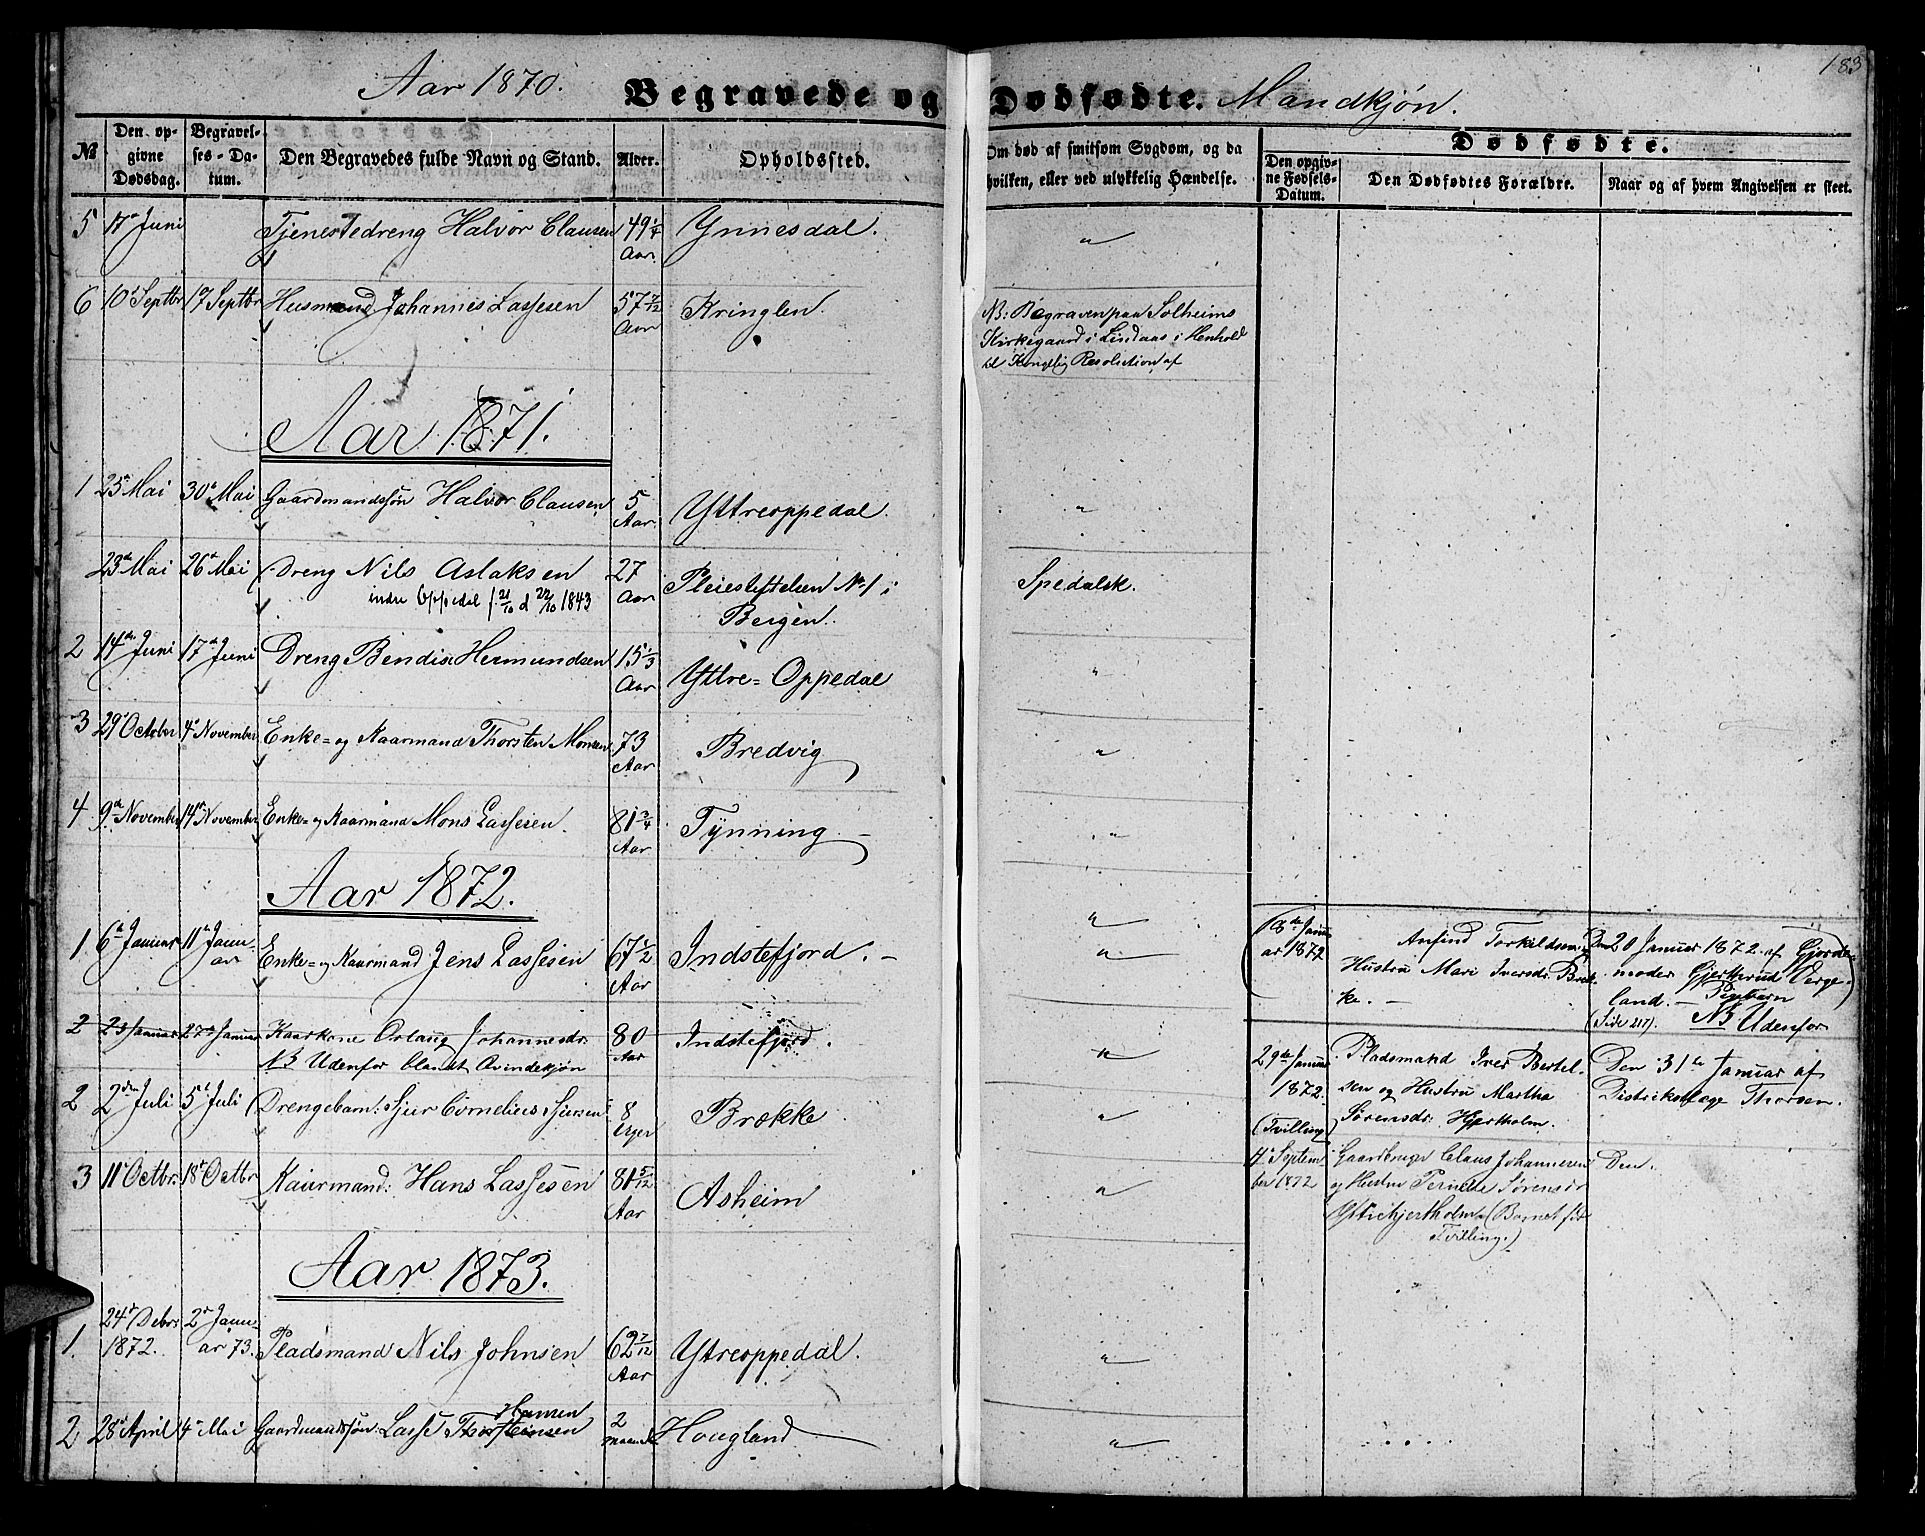 183
Aar 1870. Begravede og Dødfødte. Mandkjøn.
№ Den opgivne Dødsdag. Begravelses-Datum. Den Begravedes fulde Navn og Stand. Alder. Opholdssted. Om død af smitsom Sygdom, og da hvilken, eller ved ulykkelig Hændelse. Dødfødte.
Den opgivne Fødsels-Datum. Den Dødfødtes Forældre. Naar og af hvem Angivelsen er skeet.
5 17de Juni Tjenestedreng Halvor Clausen 49 1/4 Aar. Ynnesdal. "
6 10de Septbr 17 Septbr Husmand Johannes Lassesen 57 7/12 Aar Kringlen.
NB: Begraven paa Solheims
Kirkegaard i Lindaas i Henhold
til Kongelig Resolution af
Aar 1871.
1 25de Mai 30de Mai Gaardmandssøn Halvor Clausen 5 Aar. Yttreoppedal. "
23de Mai 26de Mai Dreng Nils Aslaksen 27 Aar Pleiestiftelsen No 1 i Spedalsk.
indre Oppedal f 21/10 d 22/10 1843 Bergen.
2 14de Juni 17de Juni Dreng Bendix Hermundsen 15 1/3 Aar Yttre=Oppedal "
3 29de October 4de November Enke= og Kaarmand Thorsten Monsen 73 Aar Bredvig "
4 9de November 14de November Enke= og Kaarmand Mons Lassesen. 81 3/4 Aar Tynning "
Aar 1872.
1 6te Januar 11te Januar Enke= og Kaarmand Jens Lassesen 67 1/2 Aar Indstefjord. "
2 23 Januar 27de Januar Kaarkone Orlaug Johannesdr. 80 Aar Indstefjord.
NB Udenfor blandt Qvindekjøn
2 2den Juli 5te Juli Drengebarn: Sjur Cornelius Sjursen 8 Uger Brække "
3 11te Octbr. 18de Octbr Kaarmand: Hans Lassesen 81 5/12 Aar Asheim "
(18de Januar 1872 Anfind Torkildsen og
Hustru Mari Iversdr. Brekke.
Den 20 Januar 1872 af Gjordemoder Gjerthrud Verge-
land. — Pigebarn
(Side 217). NB Udenfor
29de Januar 1872. (Tvilling) Pladsmand Iver Bertel-
sen og Hustru Martha
Sørensdr: Hjertholm.
Den 31te Januar af
Distriktslæge Thorsen.
4de September 1872 Gaardbruger Claus Johannesen
og Hustru Pernille Sørensdr
Ytrehjertholm (Barnet før
Tvilling.)
Den.
Aar 1873.
1. 24de Debr. 1872. 2den Januar 73. Pladsmand Nils Johnsen 62 7/12 Aar Ytreoppedal. "
2 28de April 4de Mai Gaardmandssøn: Lasse Thorsteinsen Hansen 2 Maaneder Hougland "